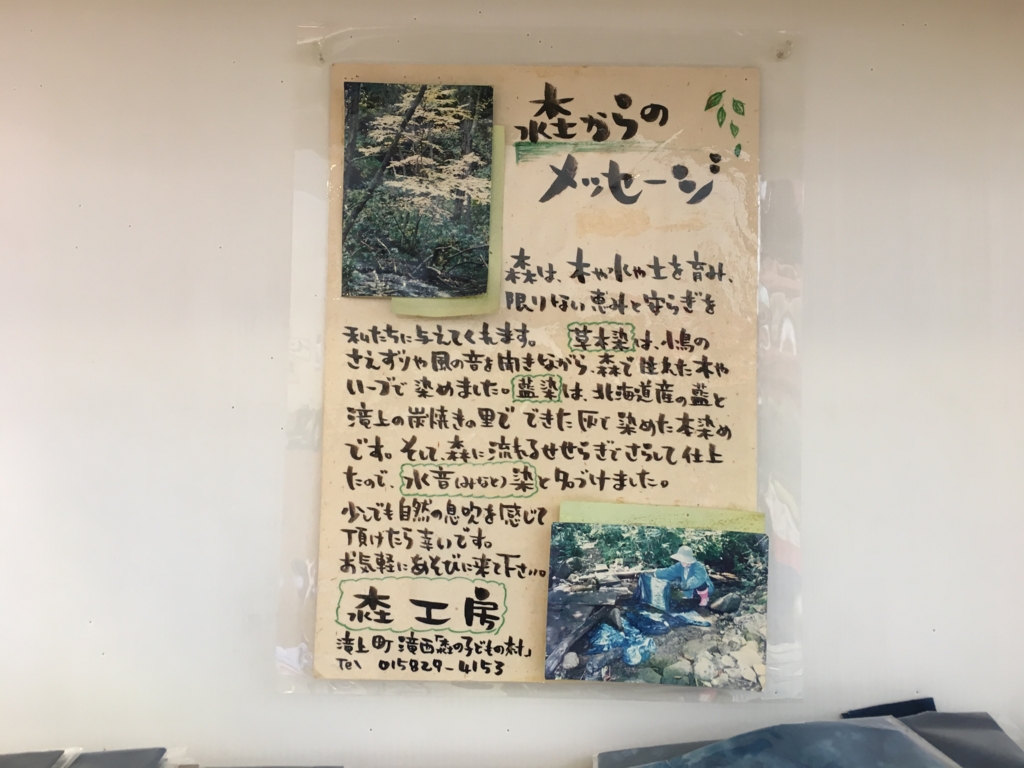 森からの
メッセージ
森は、木や水や土を育み、
限りない恵みと安らぎを
私たちに与えてくれます。 草木染は、小鳥の
さえずりや風の音を聞きながら、森で生れた木や
ハーブで染めました。藍染は、北海道産の藍と
滝上の炭焼きの里で できた灰で染めた本染め
です。そして、森に流れるせせらぎでさらして仕上
たので、水音(みなと)染と名づけました。
少しでも自然の息吹を感じて
頂けたら幸いです。
お気軽にあそびに来て下さい。
森工房
滝上町 滝西「森の子どもの村」
Tel 015829-4153